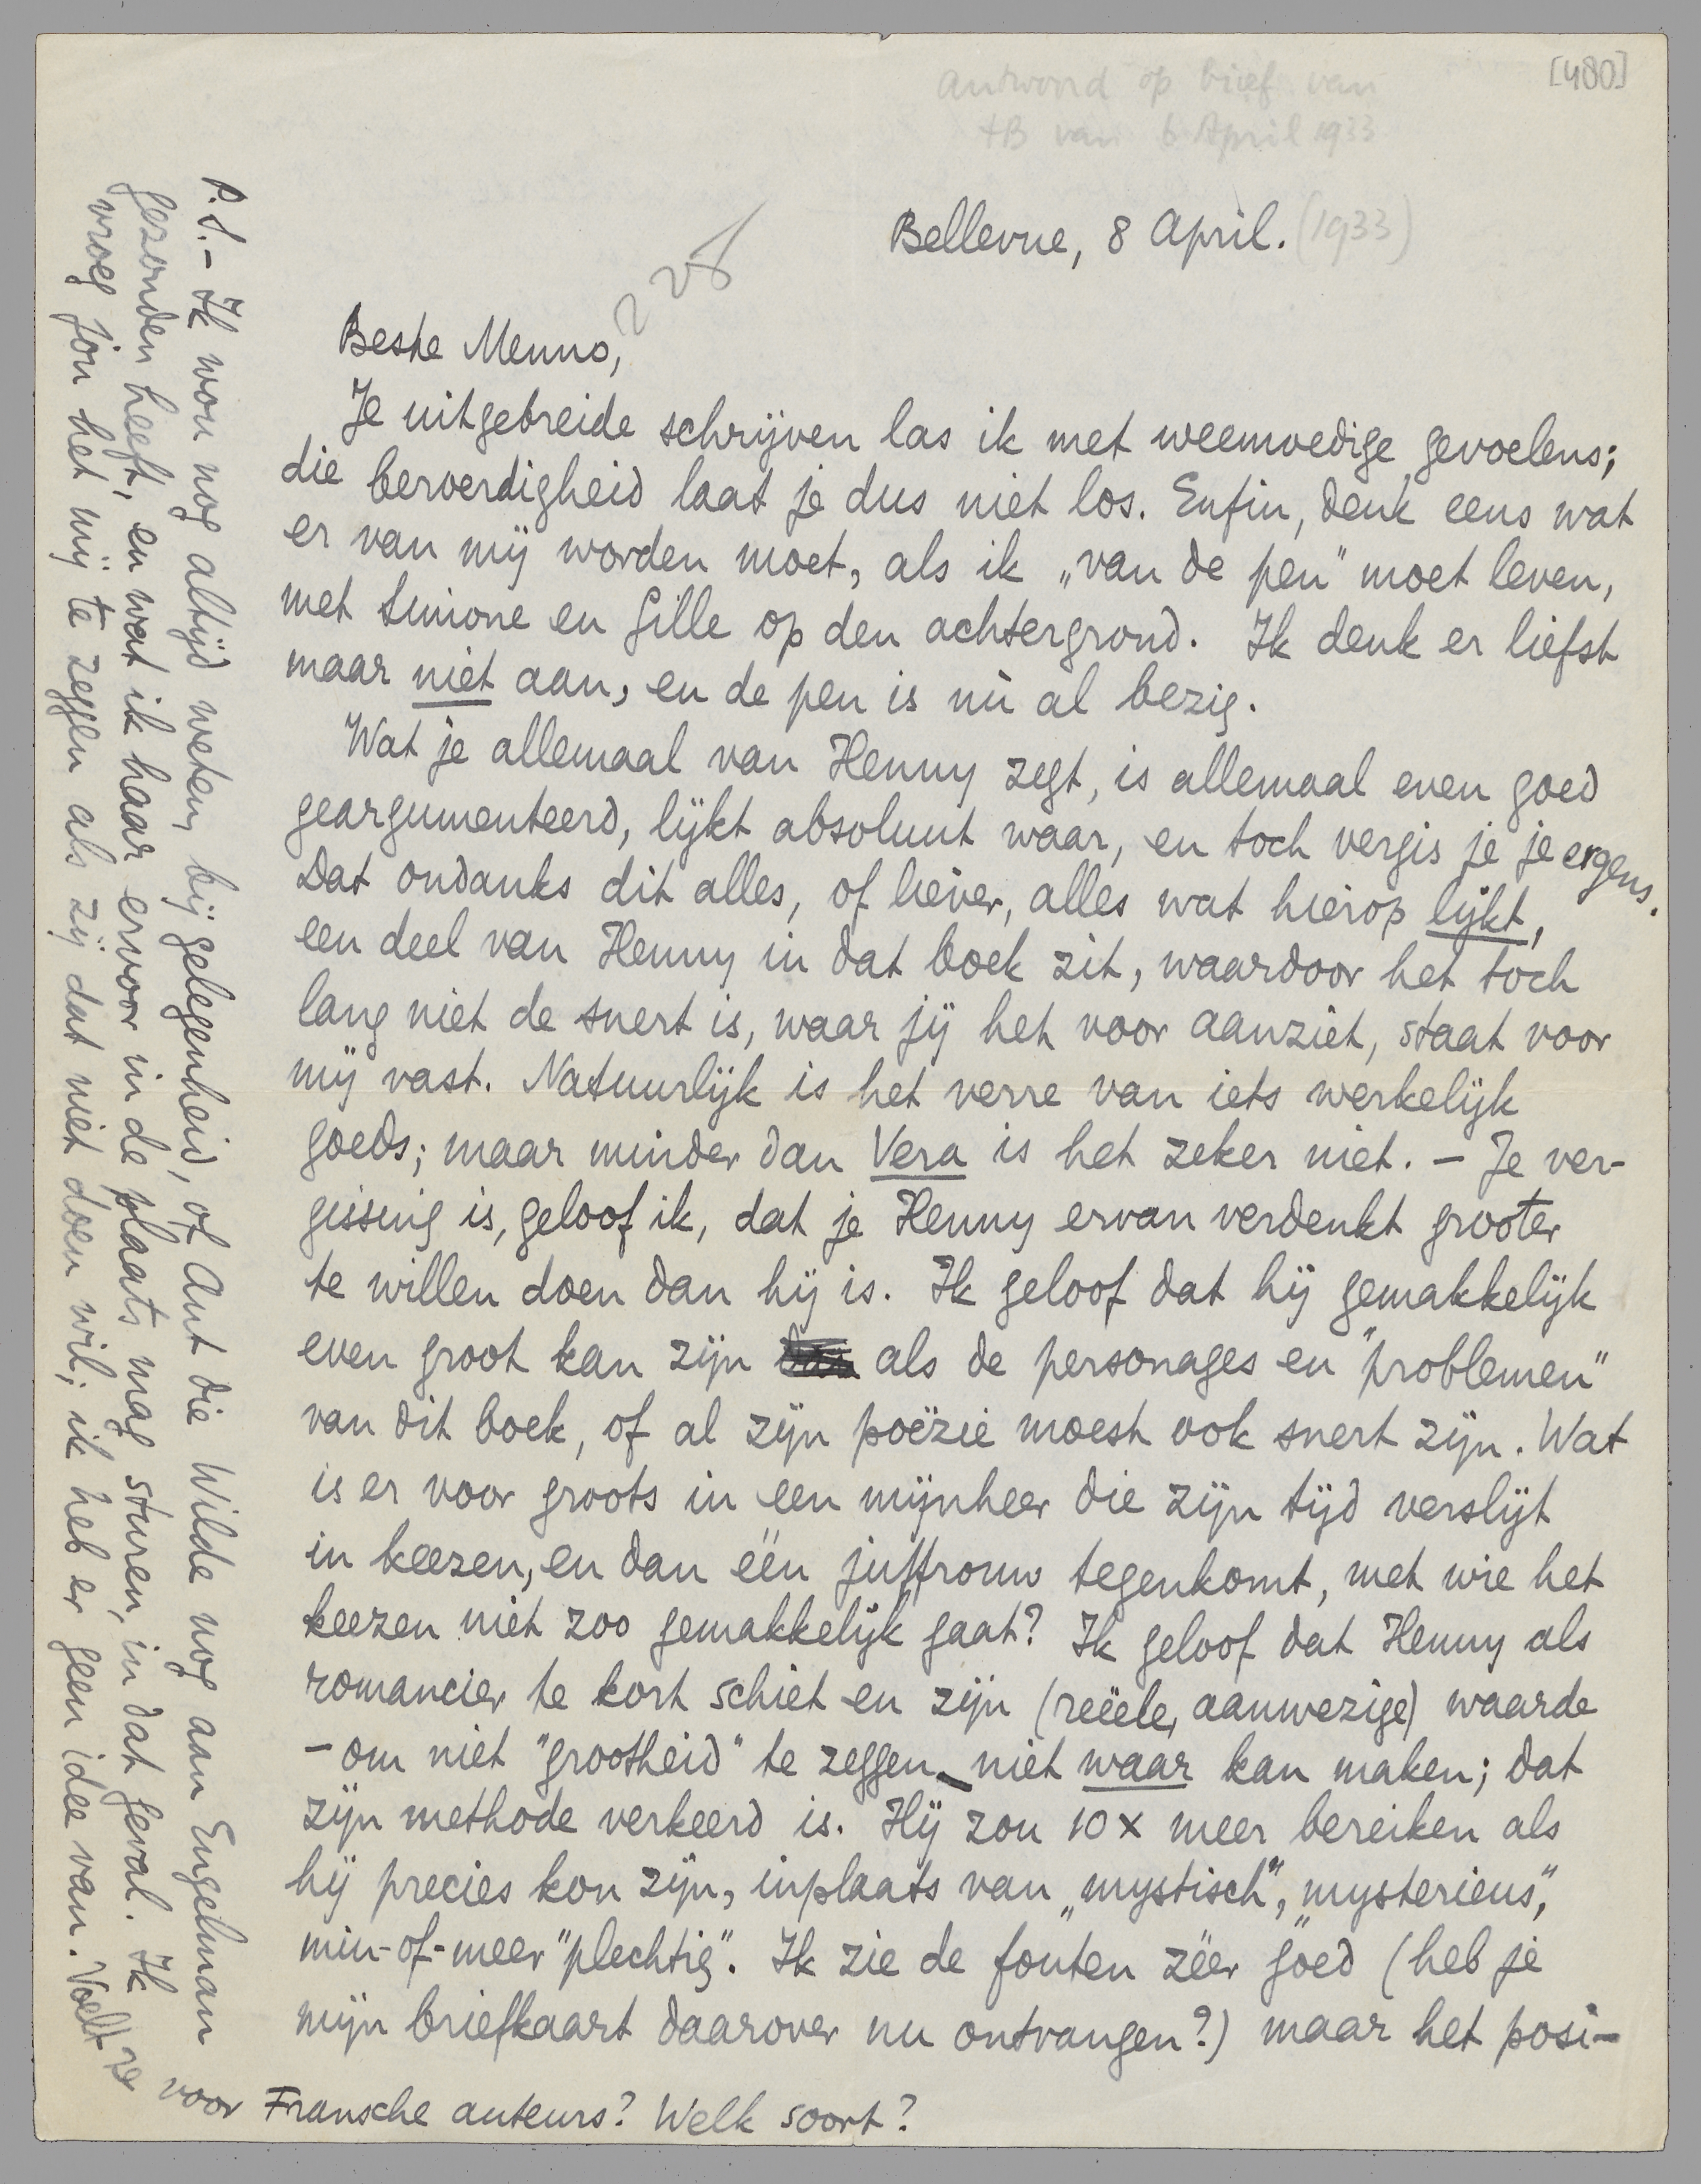 [480]
Antwoord op brief van
tB van 6 April 1933
Bellevue, 8 April. (1933)
Beste Menno,
Je uitgebreide schrijven las ik met weemoedige gevoelens;
die beroerdigheid laat je dus niet los. Enfin, denk eens wat
er van mij worden moet, als ik „van de pen" moet leven,
met Simone en Gille op den achtergrond. Ik denk er liefst
maar niet aan, en de pen is nù al bezig.
Wat je allemaal van Henny zegt, is allemaal even goed
geargumenteerd, lijkt absoluut waar, en toch vergis je je ergens.
Dat ondanks dit alles, of liever, alles wat hierop lijkt,
een deel van Henny in dat boek zit, waardoor het toch
lang niet de snert is, waar jij het voor aanziet, staat voor
mij vast. Natuurlijk is het verre van iets werkelijk
goeds; maar minder dan Vera is het zeker niet. – Je ver-
gissing is, geloof ik, dat je Henny ervan verdenkt grooter
te willen doen dan hij is. Ik geloof dat hij gemakkelijk
even groot kan zijn als de personages en "problemen"
van dit boek, of al zijn poëzie moest ook snert zijn. Wat
is er voor groots in een mijnheer die zijn tijd verslijt
in keezen, en dan één juffrouw tegenkomt, met wie het
keezen niet zoo gemakkelijk gaat? Ik geloof dat Henny als
romancier te kort schiet en zijn (reëele, aanwezige) waarde
– om niet "grootheid" te zeggen – niet waar kan maken; dat
zijn methode verkeerd is. Hij zou 10 x meer bereiken als
hij precies kon zijn, inplaats van „mystisch", „mysterieus",
min-of-meer "plechtig". Ik zie de fouten zéér goed (heb je
mijn briefkaart daarover nu ontvangen?) maar het posi-
P.S. – Ik wou nog altijd weten, bij gelegenheid, of Ant die Wilde nog aan Engelman
gezonden heeft, en wat ik haar ervoor in de plaats mag sturen, in dat geval. Ik
vroeg jou het mij te zeggen als zij dat niet doen wil; ik heb er geen idee van. Voelt ze
voor Fransche auteurs? Welk soort?